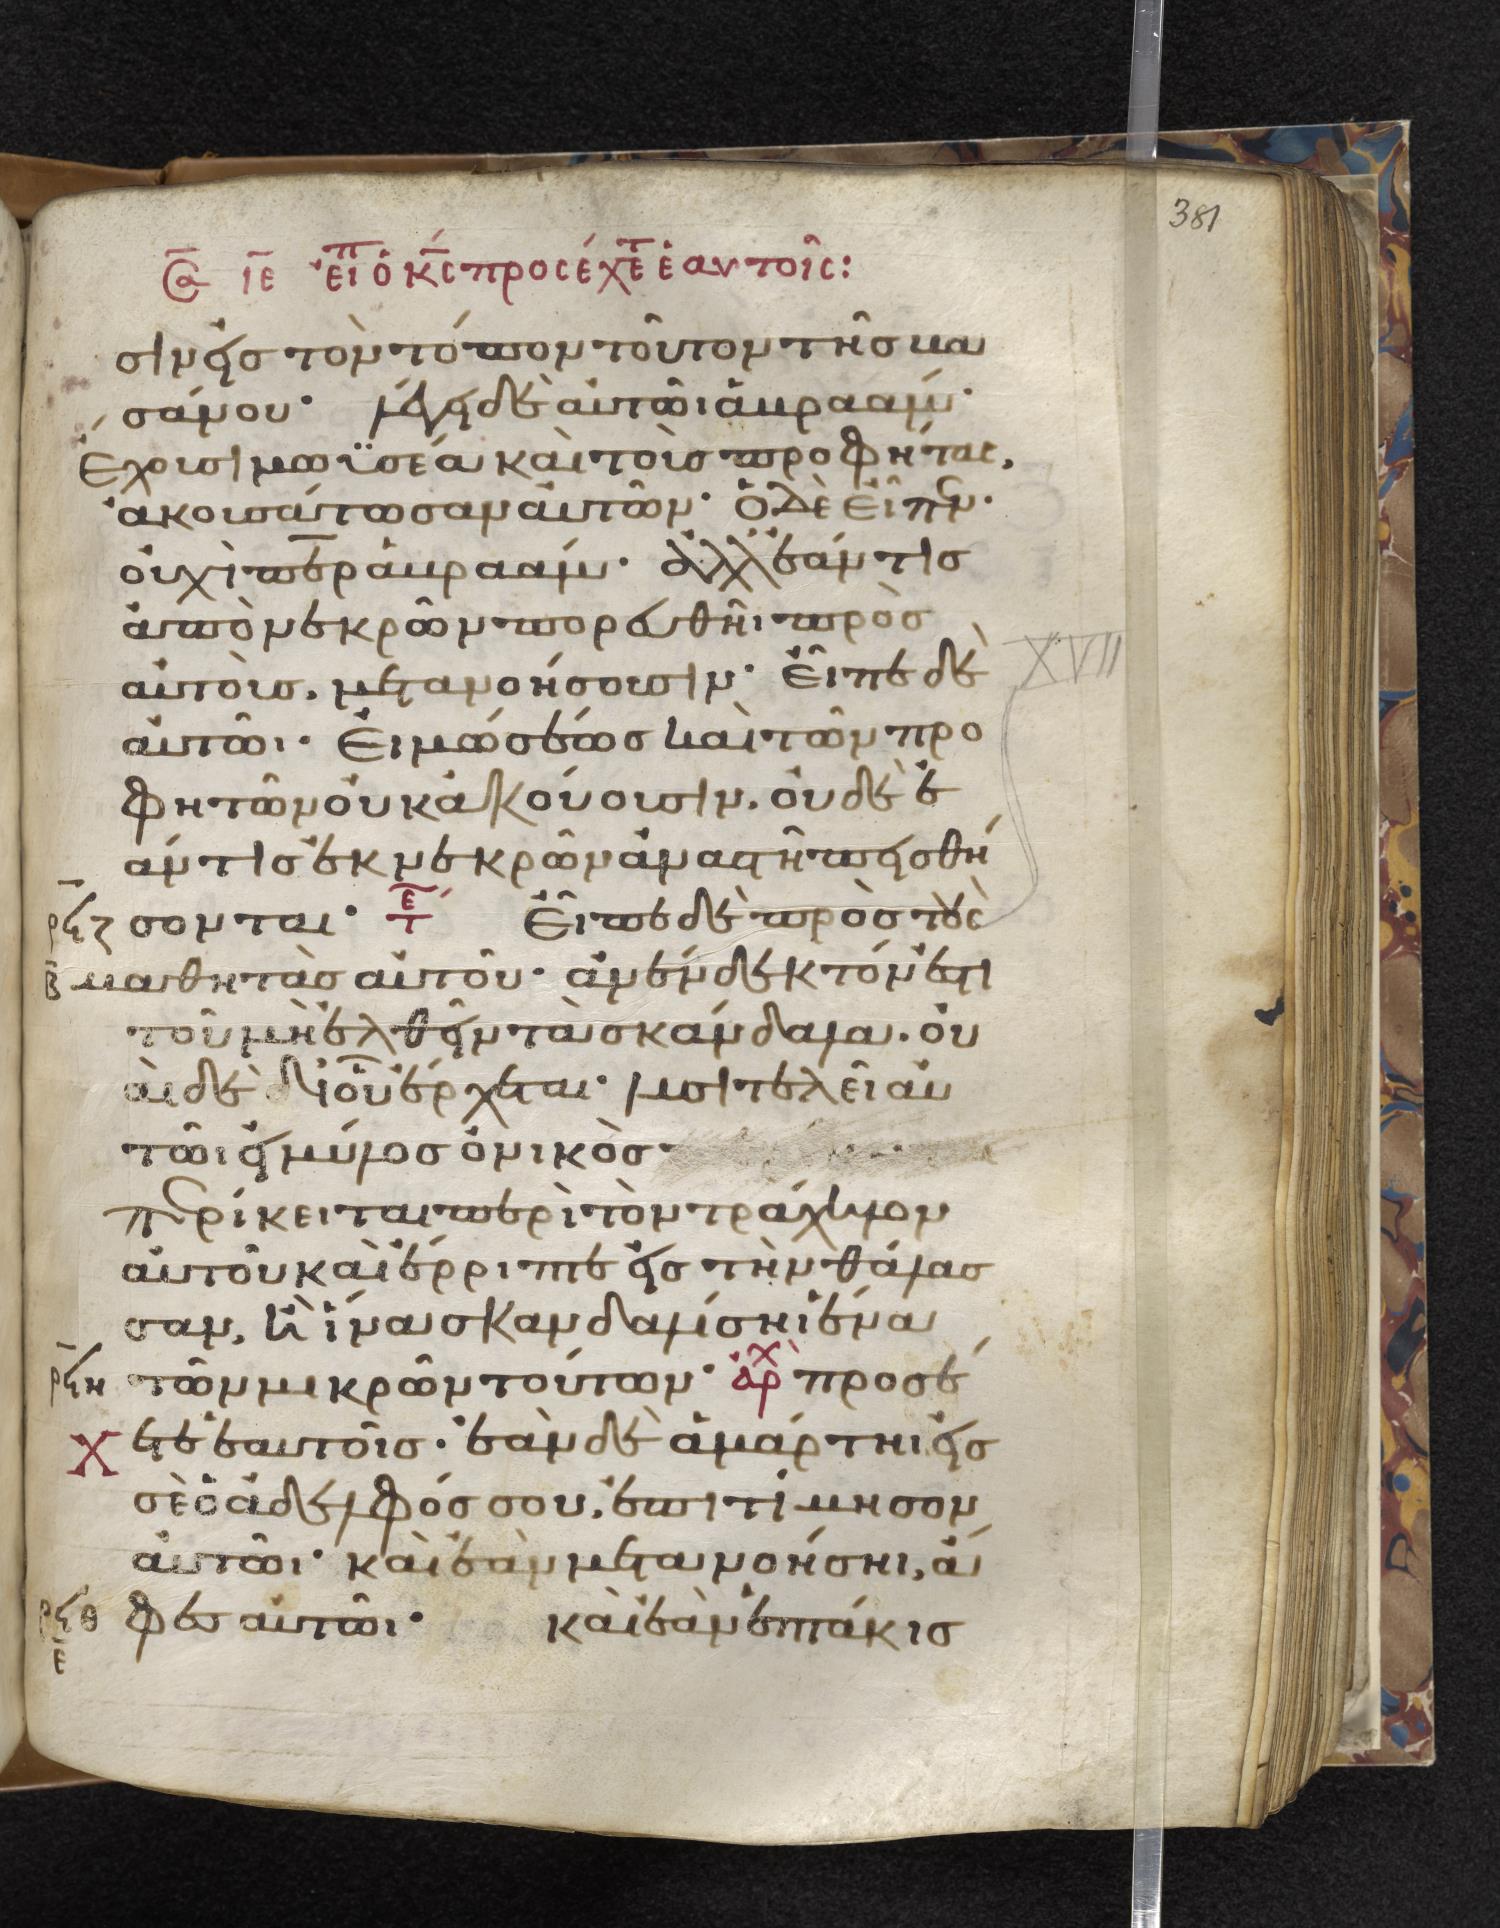 381
Σα ΙΕ εἶπ ὁ κ̅ς̅ προσέχετε ἑαυτοῖς:
σιν εἰς τὸν τόπον τοῦτον τῆς βα
σάνου· λέγει δὲ αὐτῶι ἀβραάμ·
ἔχουσι μωϋσέα καὶ τοὺς προφήτας,
ἀκουσάτωσαν αὐτῶν· ὁ δὲ εἶπεν·
οὐχὶ π̅ε̅ρ̅ ἀβραάμ· ἀλλ' ἐάν τις
ἀπὸ νεκρῶν πορευθῆι πρὸς
αὐτοὺς, μετανοήσουσιν· εἶπε δὲ
αὐτῶι· εἰ μωσέως καὶ τῶν προ
φητῶν οὐκ ἀκούουσιν, οὐδὲ ἐ
άν τις ἐκ νεκρῶν ἀναστῆ πεισθή
ρϟζ σονται· τε εἶπε δὲ πρὸς τοὺς
β μαθητὰς αὐτοῦ· ἀνένδεκτόν ἐστι
τοῦ μὴ ἐλθεῖν τὰ σκάνδαλα. οὐ
αὶ δὲ δι' οὗ ἔρχεται· λυσιτελεῖ αὐ
τῶι εἰ μύλος ὀνικὸς
περίκειται περὶ τὸν τράχηλον
αὐτοῦ καὶ ἔρριπτε εἰς τὴν θάλασ
σαν, ἢ ἵνα σκανδαλίσηι ἕνα
ρϟη τῶν μικρῶν τούτων· ἀρχ προσέ
Χ ετε ἑαυτοῖς· ἐὰν δὲ ἁμάρτηι εἰς
σὲ ὁ ἀδελφός σου, ἐπιτίμησον
αὐτῶι· καὶ ἐὰν μετανοήσηι, ἄ
ρϟθ φες αὐτῶι· καὶ ἐὰν ἑπτάκις
ε
XVII